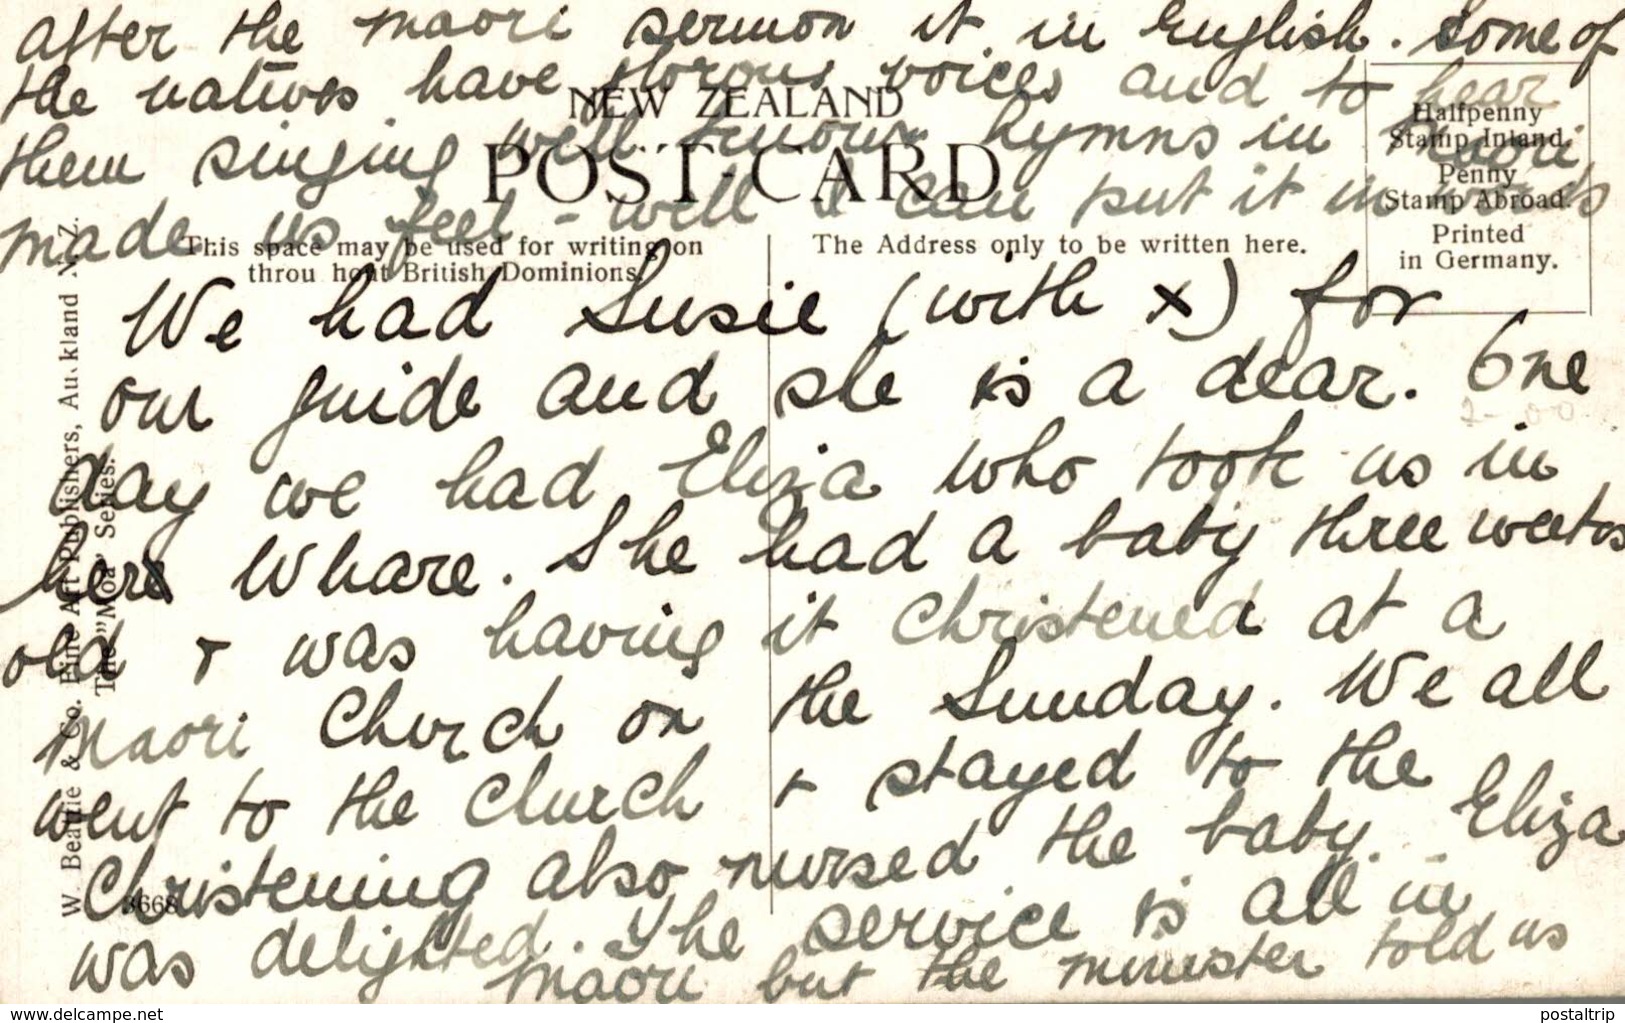 after the maori sermon it in English. Some of
the natives have glorous voices and to hear
them singing well known hymns in maori
made us feel - well I can put it in words
NEW ZEALAND
POST-CARD
Halfpenny
Stamp Inland.
Penny
Stamp Abroad.
Printed
in Germany.
This space may be used for writing on
throu hout British Dominions.
The Address only to be written here.
We had Susie (with x) for
our guide and she is a dear. One
day we had Eliza who took us in
her Whare. She had a baby three weeks
old + was having it Christened at a
Maori Church on the Sunday. We all
went to the Church + stayed to the
Christening also nursed the baby. Eliza
was delighted. The service is all in
maori but the minister told us
W. Beattie & Co. Fine Art Publishers, Au.kland N.Z.
The "Moa" Series.
3668
www.delcampe.net
postaltrip